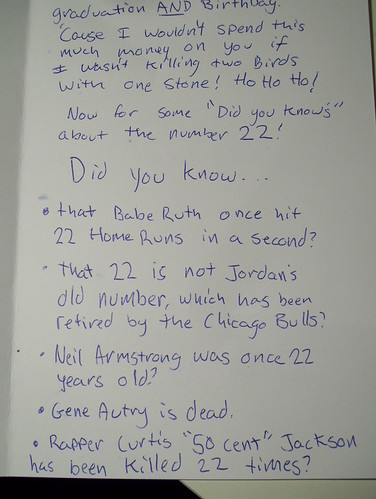 graduation AND Birthday.
'Cause I wouldn't spend this
much money on you if
I wasn't killing two Birds
with one stone! Ho Ho Ho!
Now for some "Did you know's"
about the number 22!
Did you know...
• that Babe Ruth once hit
22 Home Runs in a second?
• That 22 is not Jordan's
old number, which has been
retired by the Chicago Bulls?
• Neil Armstrong was once 22
years old?
• Gene Autry is dead.
• Rapper Curtis "50 cent" Jackson
has been killed 22 times?